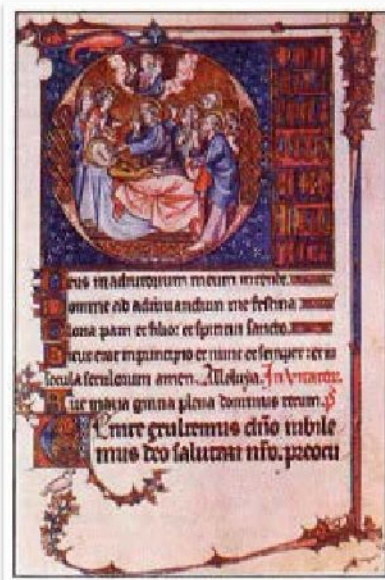 Deus in adiutorium meum intende.
Domine ad adiuvandum me festina
Gloria patri et filio et spiritui sancto.
Sicut erat in principio et nunc et semper et in
secula seculorum amen. Alleluya. Invitator.
Ave maria gratia plena dominus tecum. p̄s
Venite exultemus dño iubile
mus deo salutari nřo. preocu